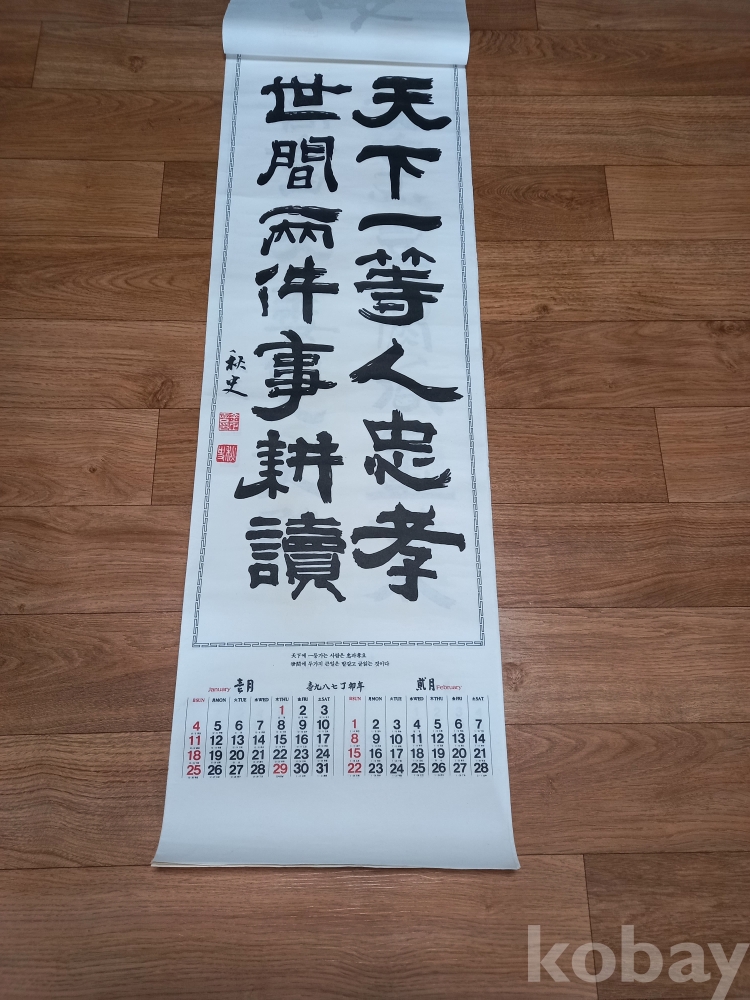 天下一等人忠孝
世間兩件事耕讀
秋史
天下에 一등가는 사람은 忠과孝요
世間에 두가지 큰일은 밭갈고 글읽는 것이다
January 壹月
壹九八七丁卯年
貳月 February
日SUN 月MON 火TUE 水WED 木THU 金FRI 土SAT
1 2 3
4 5 6 7 8 9 10
11 12 13 14 15 16 17
18 19 20 21 22 23 24
25 26 27 28 29 30 31
日SUN 月MON 火TUE 水WED 木THU 金FRI 土SAT
1 2 3 4 5 6 7
8 9 10 11 12 13 14
15 16 17 18 19 20 21
22 23 24 25 26 27 28
kobay